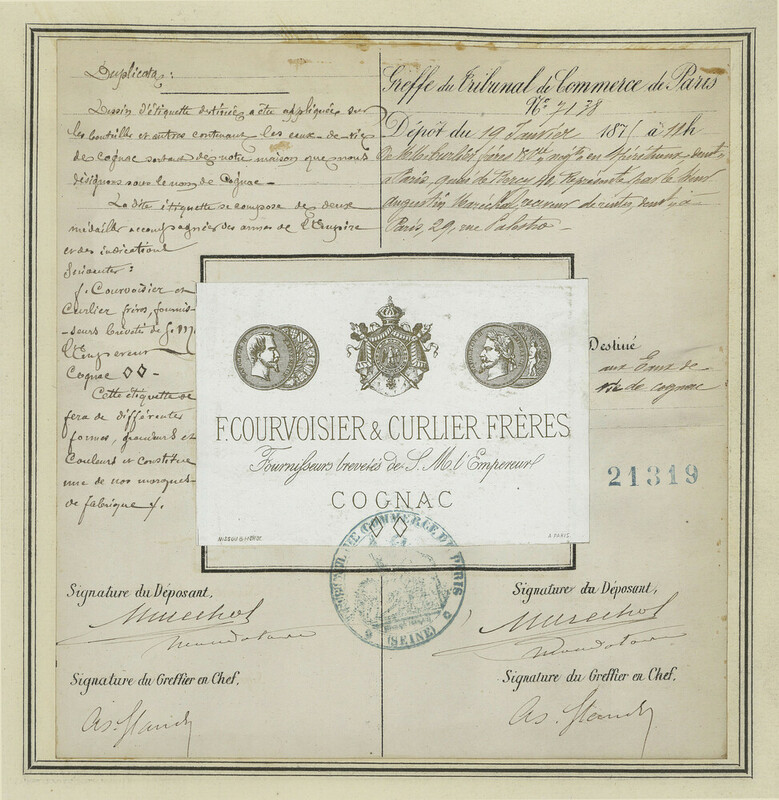 Duplicata :
Dessin d'étiquette destinée a être appliquée sur
les bouteilles et autres contenant les eaux-de-vie
de cognac sortant de notre maison que nous
désignons sous le nom de Cognac -
La dite étiquette se compose de deux
médailles accompagnées des armes de l'Empire
et des indications
suivantes :
f. Courvoisier et
Curlier frères, fournis-
-seurs brevetés de S. M.
l'Empereur
Cognac ◊◊ -
Cette étiquette se
fera de différentes
formes, grandeurs et
Couleurs et constitue
une de nos marques
de fabrique /.
Greffe du Tribunal de Commerce de Paris
N° 7138
Dépôt du 19 Janvier 1875 à 11h
De MM. Curlier frères négts en Spiritueux, demt
à Paris, quai de Bercy 40, Représentés par le Sieur
Augustin Maréchal, receveur de rentes, demt à
Paris, 29, rue Palestro -
Destiné
aux Eaux de
vie de cognac
21319
F. COURVOISIER & CURLIER FRÈRES
Fournisseurs brevetés de S. M. l'Empereur
COGNAC
◊◊
A PARIS.
TRIBUNAL DE COMMERCE DE PARIS
(SEINE)
Signature du Déposant,
Marechal
mandataire
Signature du Greffier en Chef,
Signature du Déposant,
Marechal
mandataire
Signature du Greffier en Chef,